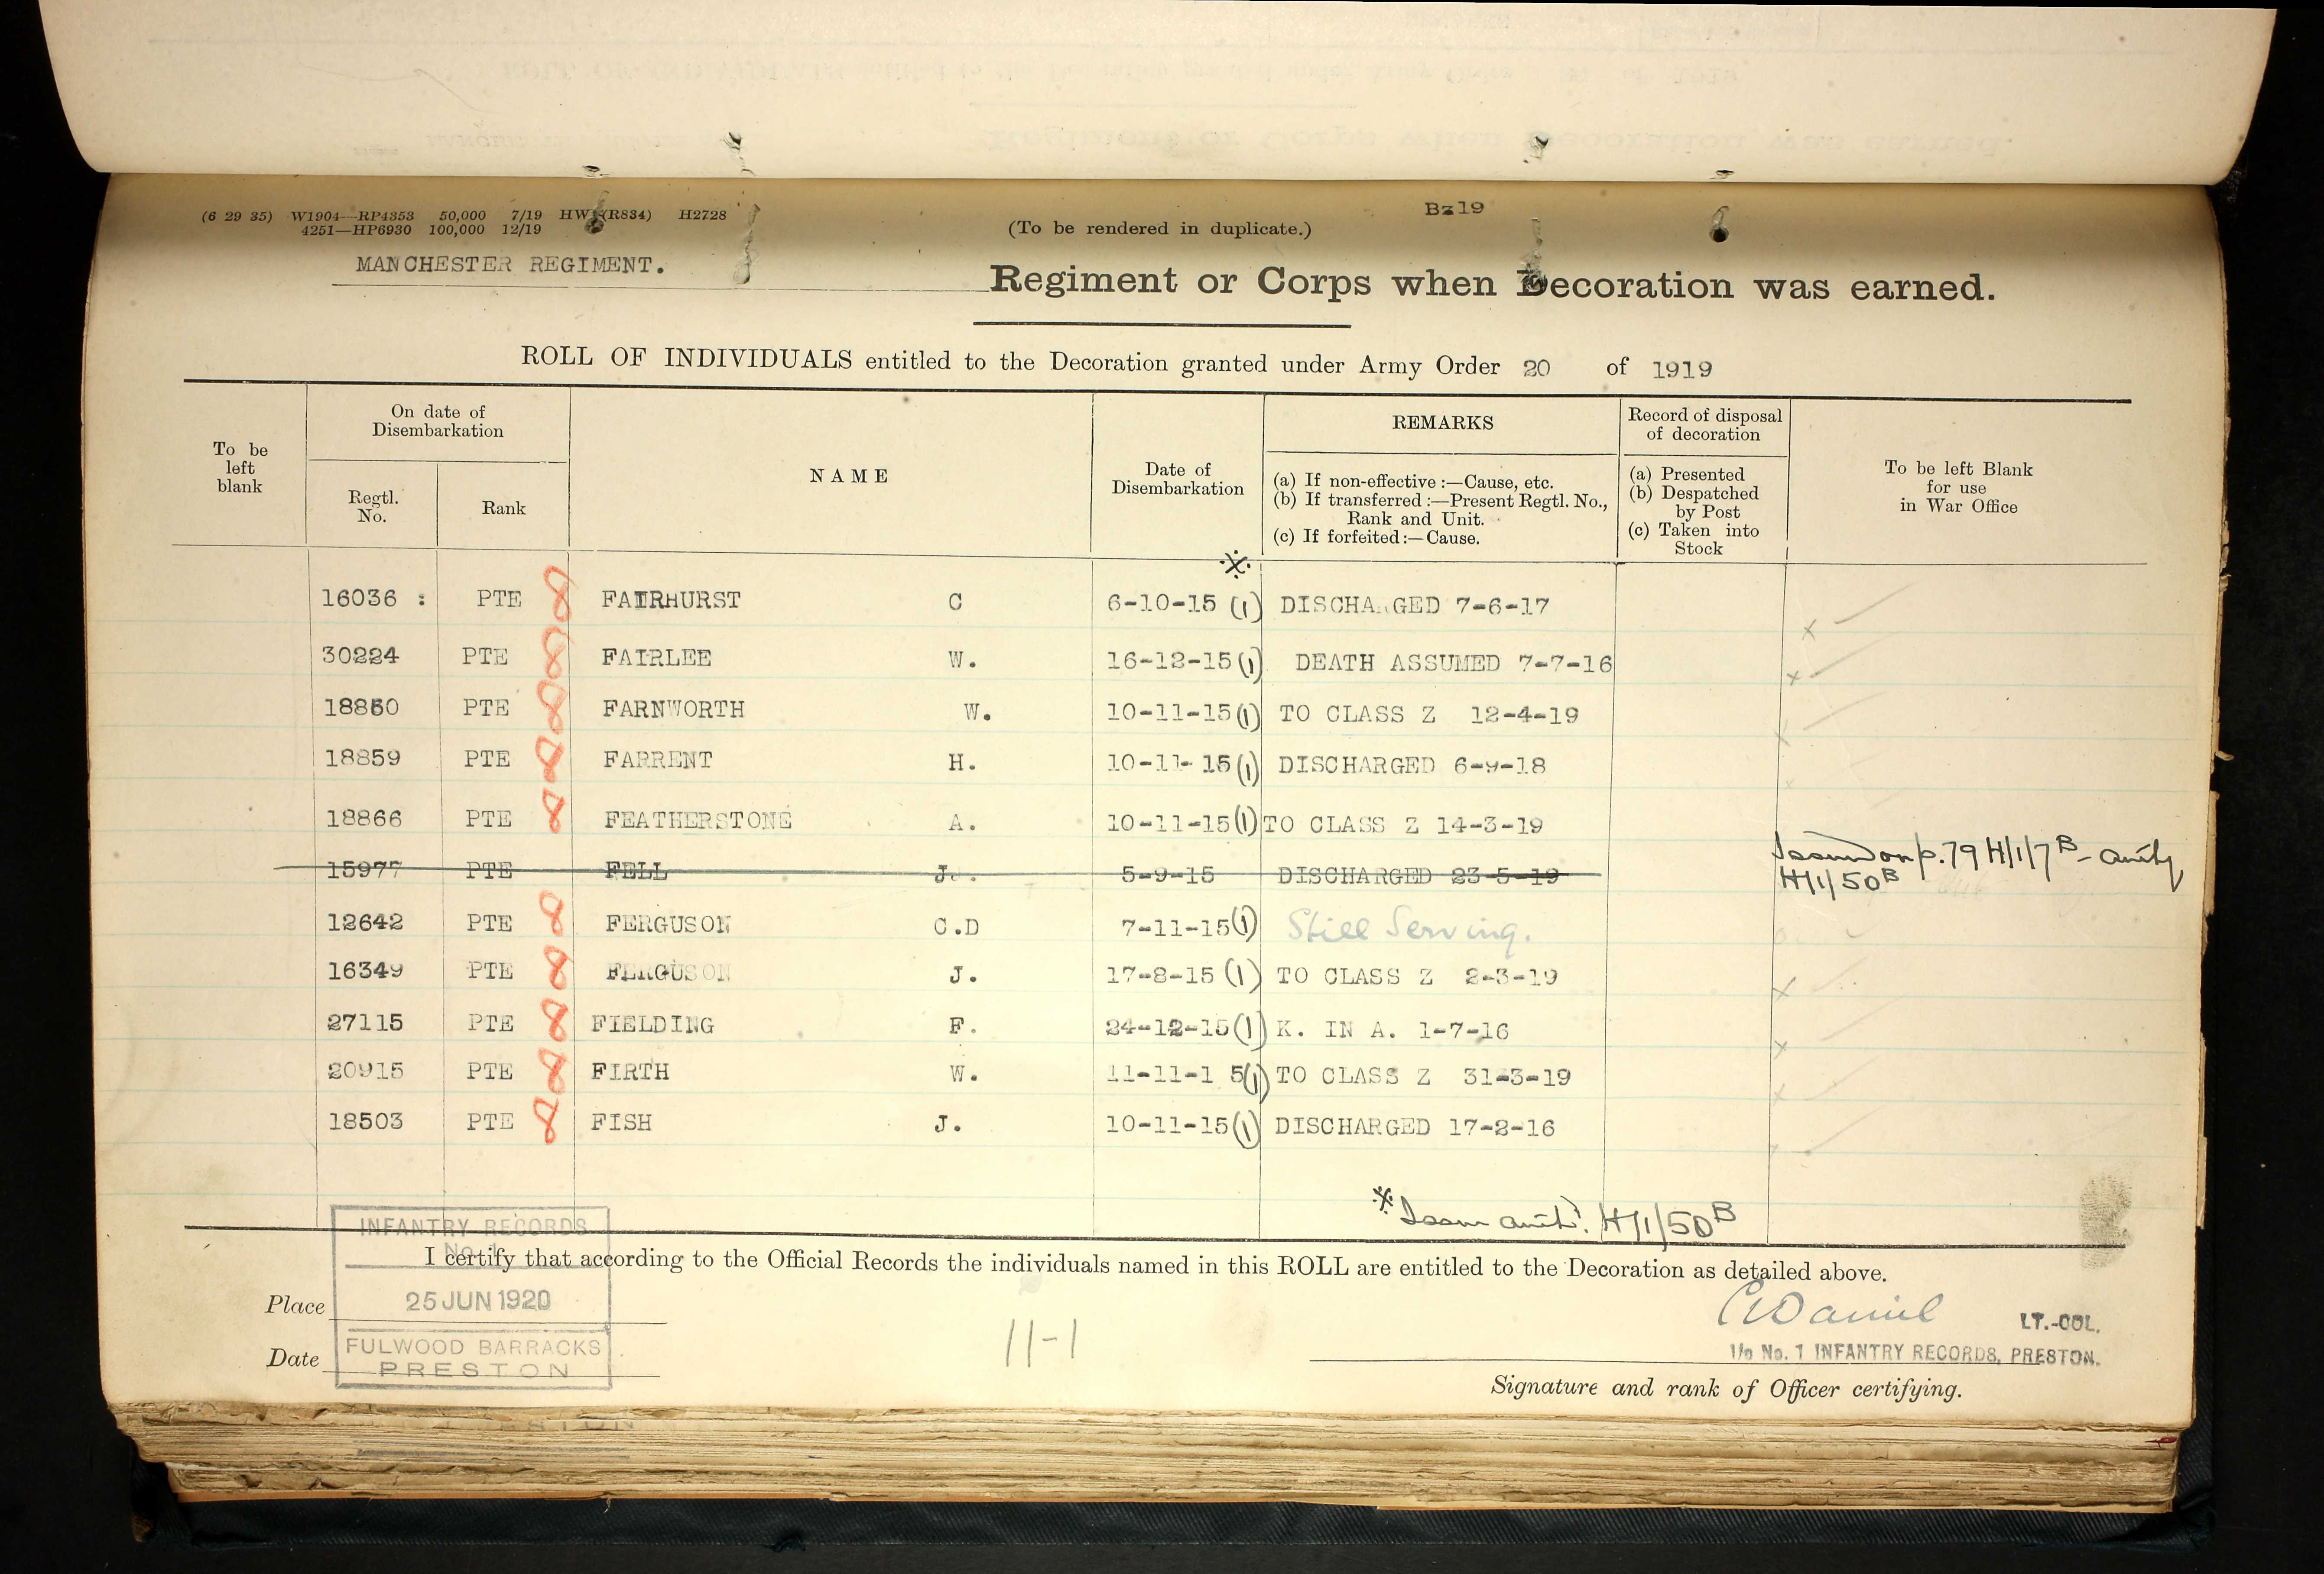 (6 29 35) W1904—RP4353 50,000 7/19 HW (R834) H2728
4251—HP6930 100,000 12/19
(To be rendered in duplicate.)
Bz19
MANCHESTER REGIMENT.
Regiment or Corps when Decoration was earned.
ROLL OF INDIVIDUALS entitled to the Decoration granted under Army Order 20 of 1919
To be left blank
On date of Disembarkation
Regtl. No.
Rank
NAME
Date of Disembarkation
REMARKS
(a) If non-effective :—Cause, etc.
(b) If transferred :—Present Regtl. No.,
Rank and Unit.
(c) If forfeited :—Cause.
Record of disposal of decoration
(a) Presented
(b) Despatched
by Post
(c) Taken into
Stock
To be left Blank
for use
in War Office
16036 : PTE FAIRHURST C 6-10-15 (1) DISCHARGED 7-6-17
30224 PTE FAIRLEE W. 16-12-15 (1) DEATH ASSUMED 7-7-16
18860 PTE FARNWORTH W. 10-11-15 (1) TO CLASS Z 12-4-19
18859 PTE FARRENT H. 10-11-15 (1) DISCHARGED 6-9-18
18866 PTE FEATHERSTONE A. 10-11-15 (1) TO CLASS Z 14-3-19
15977 PTE FELL J. 5-9-15 DISCHARGED 23-5-19 Issued on p.79 H/1/7B - auty
H/1/50B
12642 PTE FERGUSON C.D 7-11-15 (1) Still Serving.
16349 PTE FERGUSON J. 17-8-15 (1) TO CLASS Z 2-3-19
27115 PTE FIELDING F. 24-12-15 (1) K. IN A. 1-7-16
20915 PTE FIRTH W. 11-11-1 5 (1) TO CLASS Z 31-3-19
18503 PTE FISH J. 10-11-15 (1) DISCHARGED 17-2-16
※ Issue auth: H/1/50B
INFANTRY RECORDS
No. 1
I certify that according to the Official Records the individuals named in this ROLL are entitled to the Decoration as detailed above.
Place
25 JUN 1920
Date
FULWOOD BARRACKS
PRESTON
11-1
Daniel
LT.-COL.
I/c No. 1 INFANTRY RECORDS, PRESTON.
Signature and rank of Officer certifying.